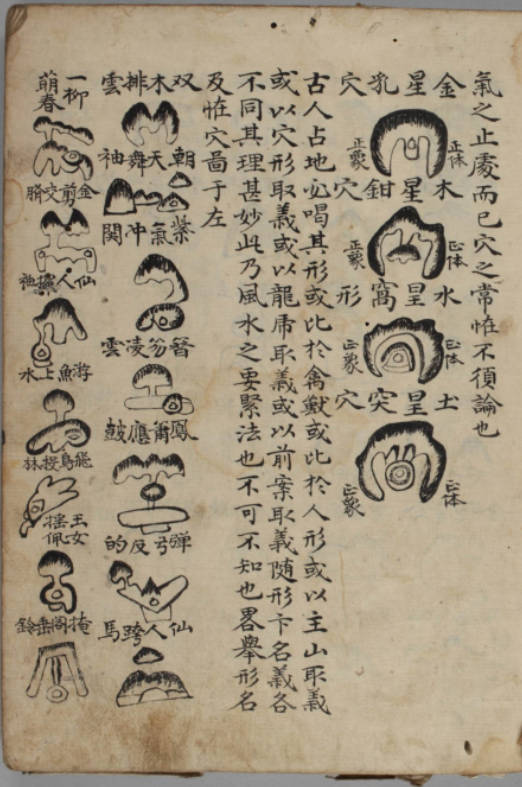 氣之止處而已穴之常怪不須論也
金星乳穴
正体
正象
木星鉗穴
正体
正象
水星窩形
正体
正象
土星突穴
正体
正象
古人占地必喝其形或比於禽獸或比於人形或以主山取義
或以穴形取義或以龍虎取義或以前案取義随形卞名義各
不同其理甚妙此乃風水之要緊法也不可不知也畧舉形名
及怪穴啚于左
双木排雲
朝天舞袖
紫氣冲関
笏凌雲
鳳簫應皷
弾弓反的
仙人跨馬
一柳萠春
金剪交
仙人
游魚上水
飛鳥投林
玉女揺佩
掩閣垂鈴